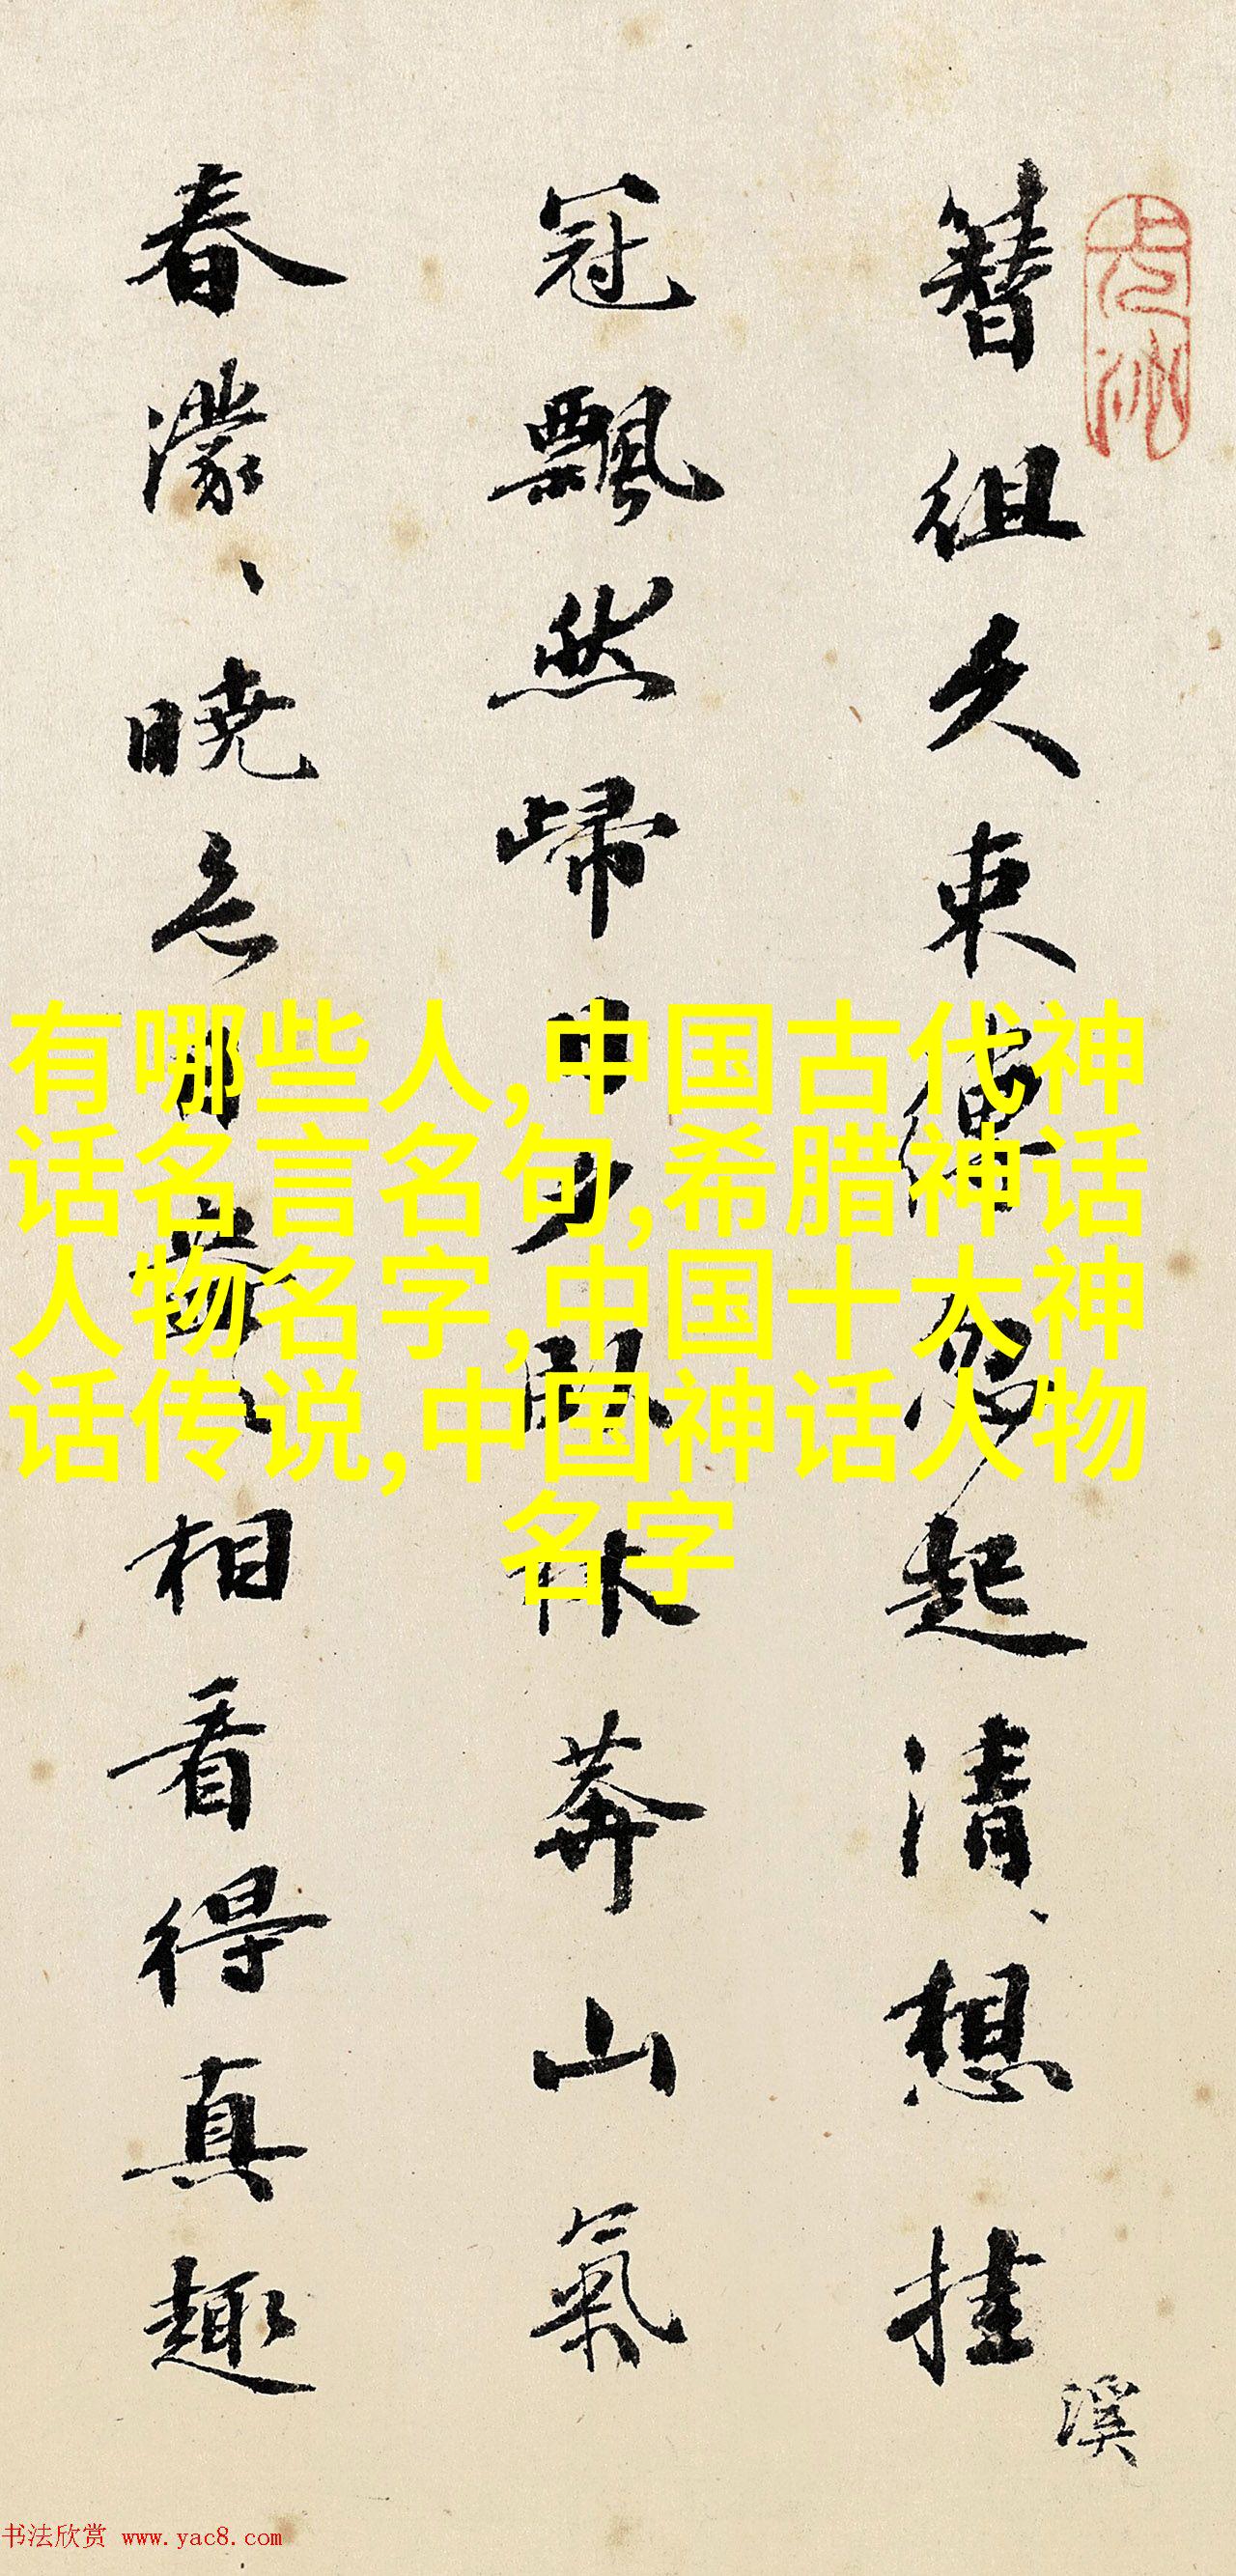 簪組久束縛忽起清想挂
冠飄然歸日夕閒林莽山氣
春濛、曉色相看得真趣
溪
有哪些人,中国古代神
话名言名句,希腊神话
人物名字,中国十大神
话传说,中国神话人物
名字
书法欣赏 www.yac8.com